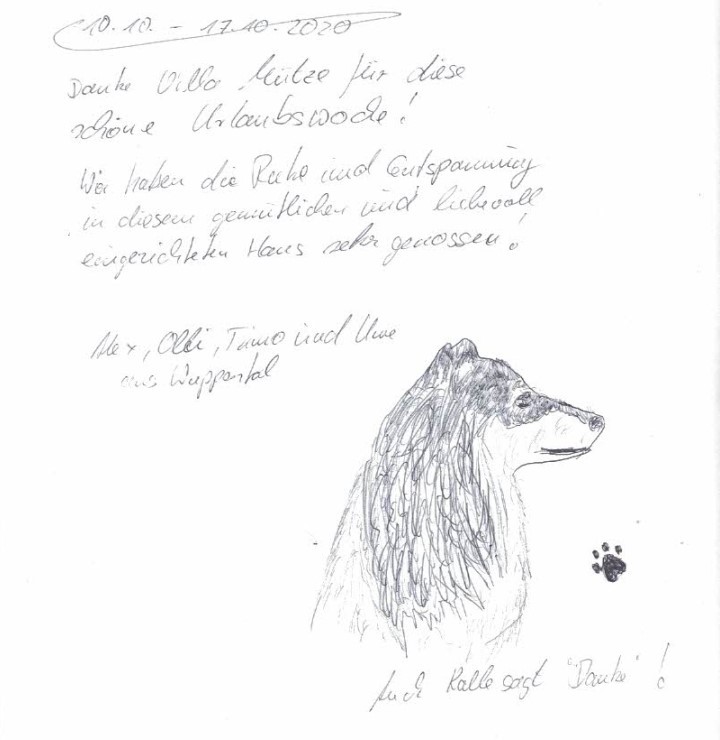 10.10. - 17.10.2020
Danke Villa Mütze für diese
schöne Urlaubswoche!
Wir haben die Ruhe und Entspannung
in diesem gemütlichen und liebevoll
eingerichteten Haus sehr genossen!
Alex, Olli, Timo und Uwe
aus Wuppertal
Auch Kalle sagt "Danke"!